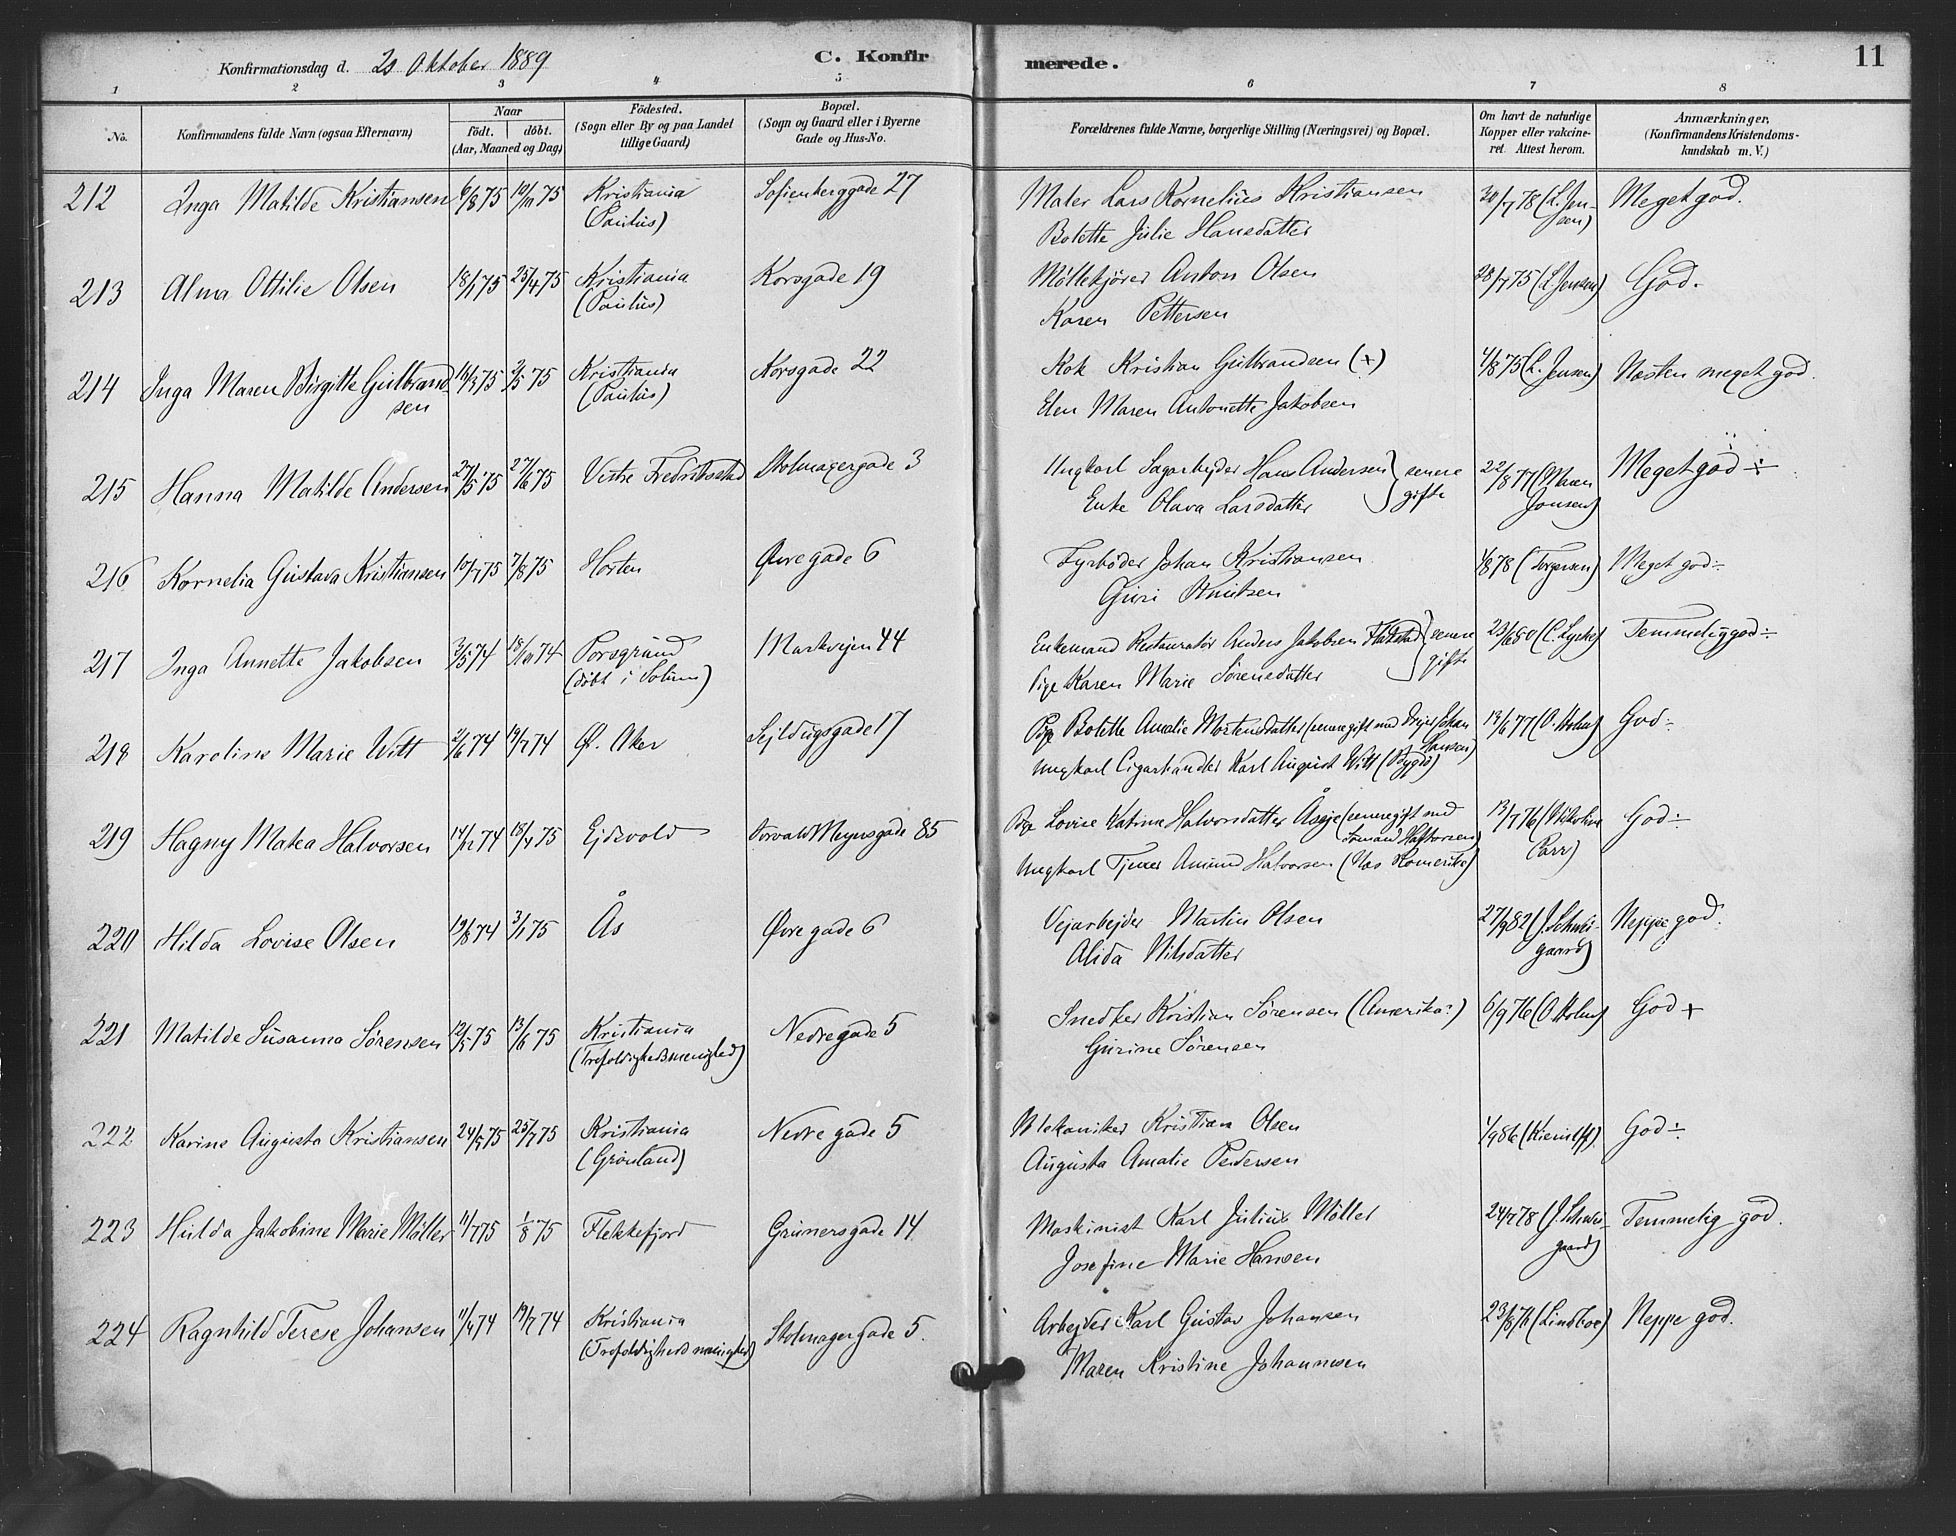 Konfirmationsdag d. 20 Oktober 1889 C. Konfirmerede. 11
1 2 3 4 5 6 7 8
No. Konfirmandens fulde Navn (ogsaa Efternavn) Naar født. døbt. (Aar, Maaned og Dag) Fødested. (Sogn eller By og paa Landet tillige Gaard) Bopæl. (Sogn og Gaard eller i Byerne Gade og Hus-No. Forældrenes fulde Navne, borgerlige Stilling (Næringsvei) og Bopæl. Om havt de naturlige Kopper eller vakcineret. Attest herom. Anmærkninger, (Konfirmandens Kristendomskundskab m. V.)
212 Inga Matilde Kristiansen 6/8 75 10/10 75 Kristiania (Paulus) Sofienberggade 27 Maler Lars Kornelius Kristiansen 30/7 78 (L. Jensen) Meget god.
Bolette Julie Hansdatter
213 Alma Ottilie Olsen 18/1 75 25/4 75 Kristiania (Paulus) Korsgade 19 Møllekjører Anton Olsen 28/7 75 (L. Jensen) God.
Karen Pettersen
214 Inga Maren Birgitte Gulbrandsen 16/3 75 2/5 75 Kristiania (Paulus) Korsgade 22 Kok Kristian Gulbrandsen (+) 4/8 75 (L. Jensen) Næsten meget god.
Elen Maren Antonette Jakobsen
215 Hanna Matilde Andersen 27/5 75 27/6 75 Vestre Fredrikstad Skolmagergade 3 Ungkarl Sagarbejder Hans Andersen } senere gifte 22/8 77 (Maren Jonsen) Meget god ÷
Enke Olava Larsdatter
216 Kornelia Gustava Kristiansen 10/7 75 7/8 75 Horten Øvregade 6 Fyrbøder Johan Kristiansen 1/8 78 (Torgersen) Meget god ÷
Guri Knutsen
217 Inga Annette Jakobsen 3/5 74 18/10 74 Porsgrund (døbt i Solum) Markvejen 44 Enkemand Restauratør Anders Jakobsen Flatstad } senere gifte 23/6 80 (C. Lycke) Temmelig god ÷
Pige Karen Marie Sørensdatter
218 Karoline Marie Witt 2/6 74 19/7 74 Ø. Aker Sejldugsgade 17 Pige Bolette Amalie Mortensdatter (senere gift med Drejer Johan Hansen) 13/6 77 (O. Holm) God ÷
Ungkarl Cigarhandler Karl August Witt (Bygdø)
219 Hagny Matea Halvorsen 14/12 74 18/4 75 Ejdsvold Torvald Meyersgade 85 Pige Lovise Katrine Halvorsdatter Åseje (senere gift med 13/7 76 (Nikoline Parr) God ÷
Ungkarl Tjener Amund Halvorsen (Næs Romerike)
220 Hilda Lovise Olsen 19/8 74 3/1 75 Ås Øvregade 6 Vejarbejder Martin Olsen 27/9 82 (J. Schweigaard) Neppe god.
Alida Nilsdatter
221 Matilde Susanna Sørensen 12/5 75 13/6 75 Kristiania (Trefoldighedsmenighed) Nedregade 5 Snedker Kristian Sørensen (Amerika?) 6/9 76 (O. Holm) God +
Gurine Sørensen
222 Karine Augusta Kristiansen 24/5 75 25/7 75 Kristiania (Grønland) Nedre gade 5 Mekaniker Kristian Olsen 1/9 86 God ÷
Augusta Amalie Pedersen
223 Hulda Jakobine Marie Møller 11/7 75 1/8 75 Flekkefjord Grünersgade 14 Maskinist Karl Julius Møller 24/7 78 (J. Schweigaard) Temmelig god.
Josefine Marie Hansen
224 Ragnhild Terese Johansen 11/4 74 19/7 74 Kristiania (Trefoldigheds menighed) Skolmagergade 5. Arbejder Karl Gustav Johansen 23/8 76 (Lindboe) Neppe god.
Maren Kristine Johannesen